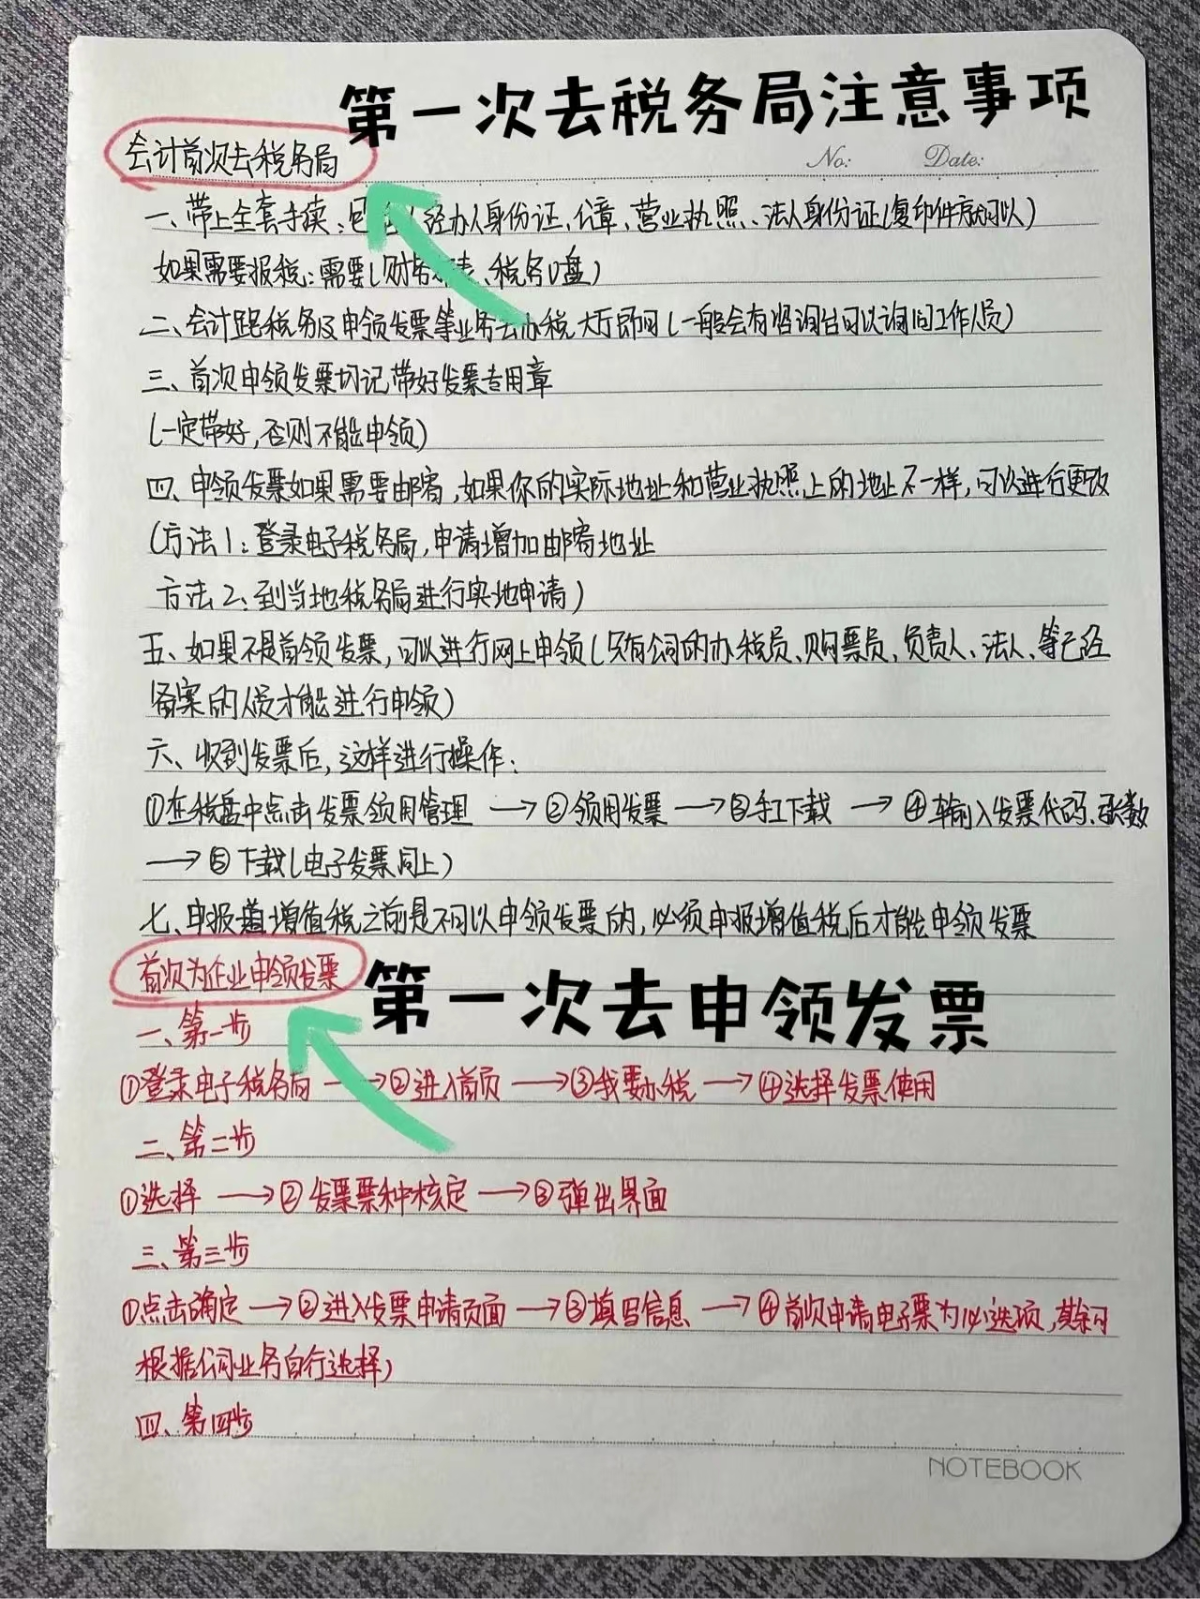 第一次去税务局注意事项
会计首次去税务局
No: Date:
一、带上全套手续:包 经办人身份证、公章、营业执照、法人身份证(复印件就可以)
如果需要报税:需要(财务 表、税务U盘)
二、会计跑税务及申领发票等业务去办税大厅即可(一般会有咨询台可以询问工作人员)
三、首次申领发票切记带好发票专用章
(一定带好,否则不能申领)
四、申领发票如果需要邮寄,如果你的实际地址和营业执照上的地址不一样,可以进行更改
(方法1:登录电子税务局,申请增加邮寄地址
方法2:到当地税务局进行实地申请)
五、如果不是首领发票,可以进行网上申领(只有公司的办税员、购票员、负责人、法人、等已经
备案的人员才能进行申领)
六、收到发票后,这样进行操作:
①在税盘中点击发票领用管理 → ②领用发票 → ③手工下载 → ④输入发票代码、张数
→ ⑤下载(电子发票同上)
七、申报 增值税之前是不可以申领发票的,必须申报增值税后才能申领发票
首次为企业申领发票
第一次去申领发票
一、第一步
①登录电子税务局 → ②进入首页 → ③我要办税 → ④选择发票使用
二、第二步
①选择 → ②发票票种核定 → ③弹出界面
三、第三步
①点击确定 → ②进入发票申请页面 → ③填写信息 → ④首次申请电子票为必选项,其余可
根据公司业务自行选择)
四、第四步
NOTEBOOK